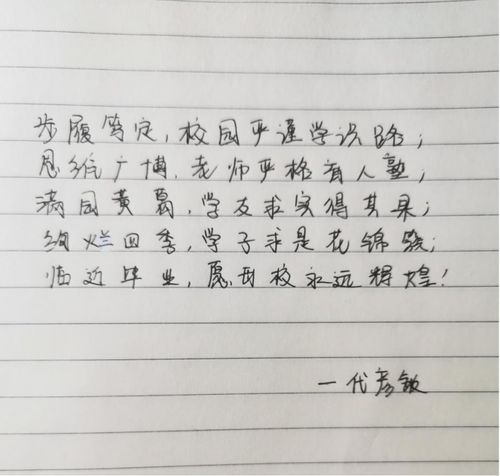 步履笃定，校园严谨学识路；
思维广博，老师严格有人塾；
满园黄葛，学友求实得其果；
绚烂四季，学子求是花锦簇；
临近毕业，愿母校永远辉煌！
一代彦敏